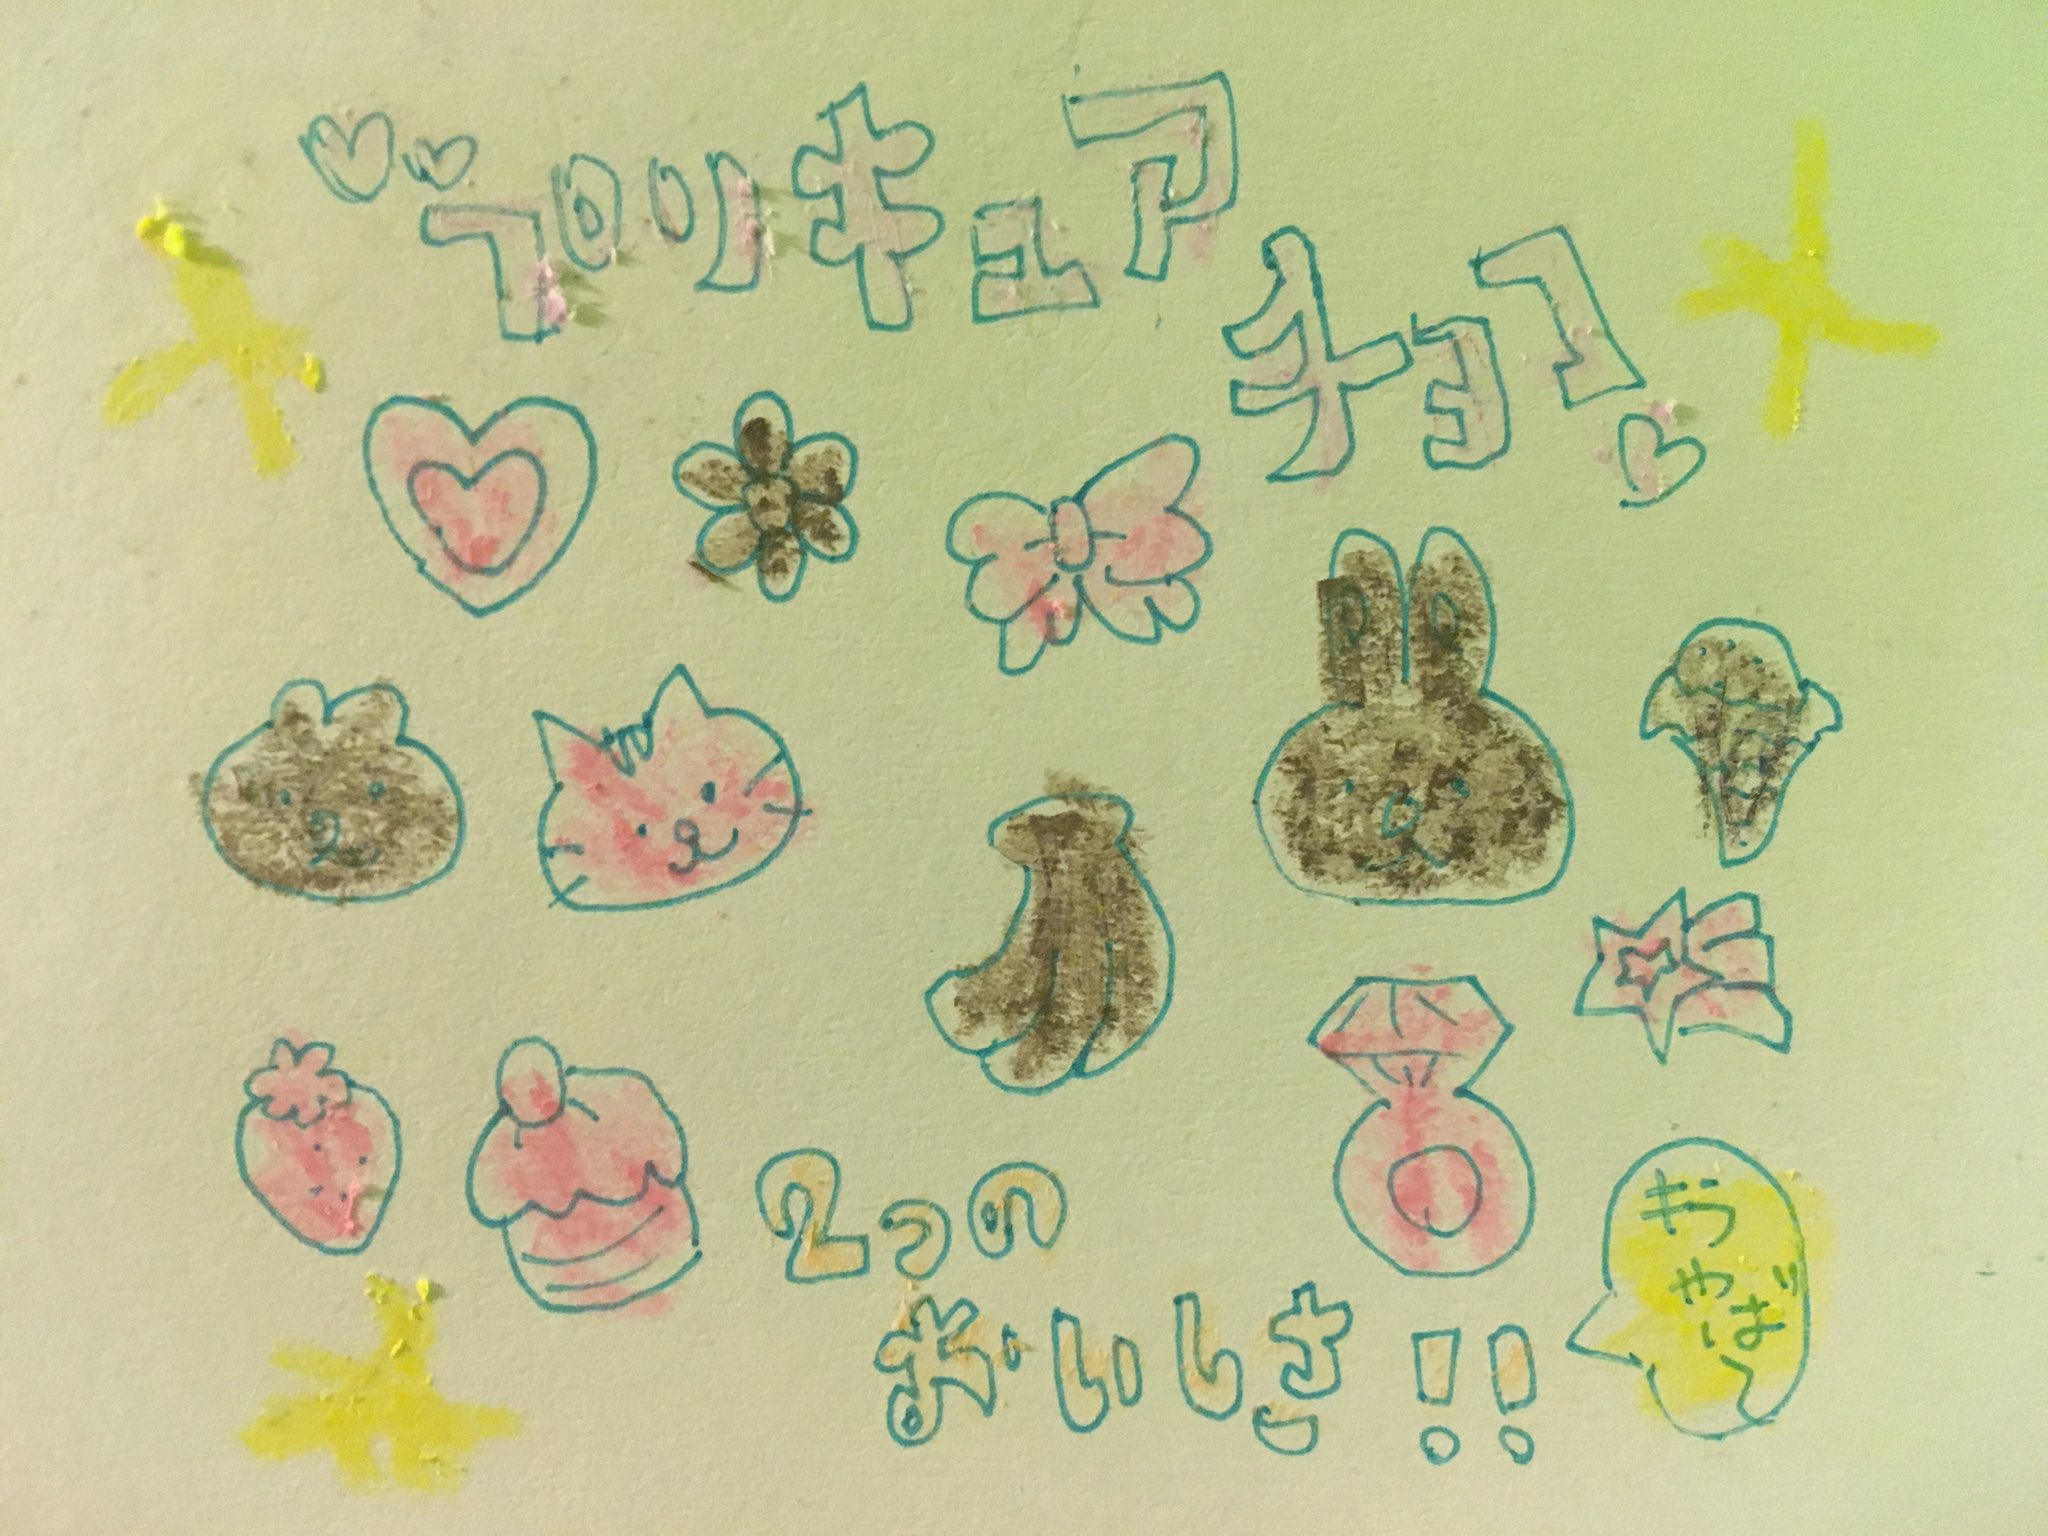 プリキュア
チョコ
2つの
おいしさ!!
キラ
やば〜